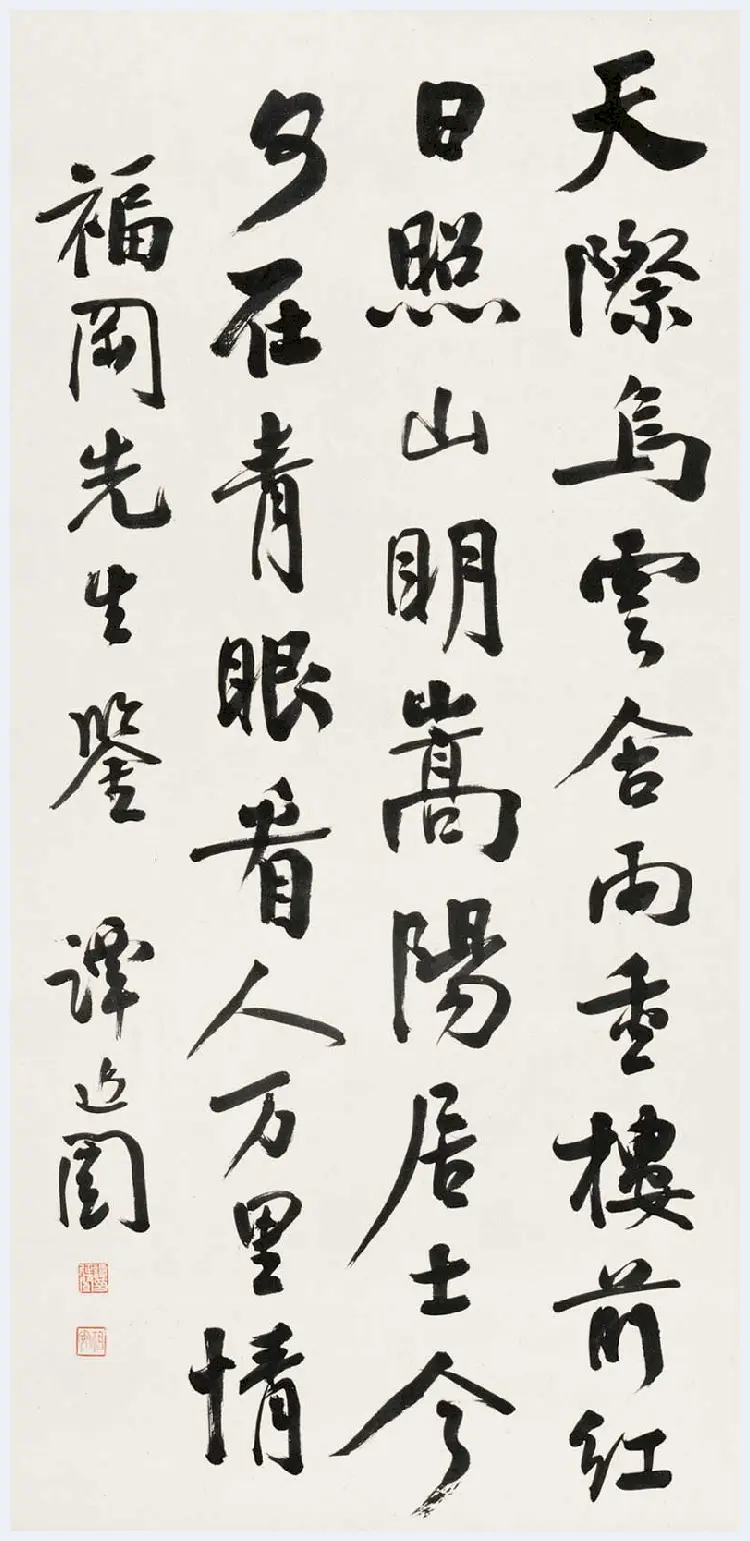 天際烏雲含雨重樓前紅
日照山明嵩陽居士今
何在青眼看人万里情
福岡先生鑒 譚延闓